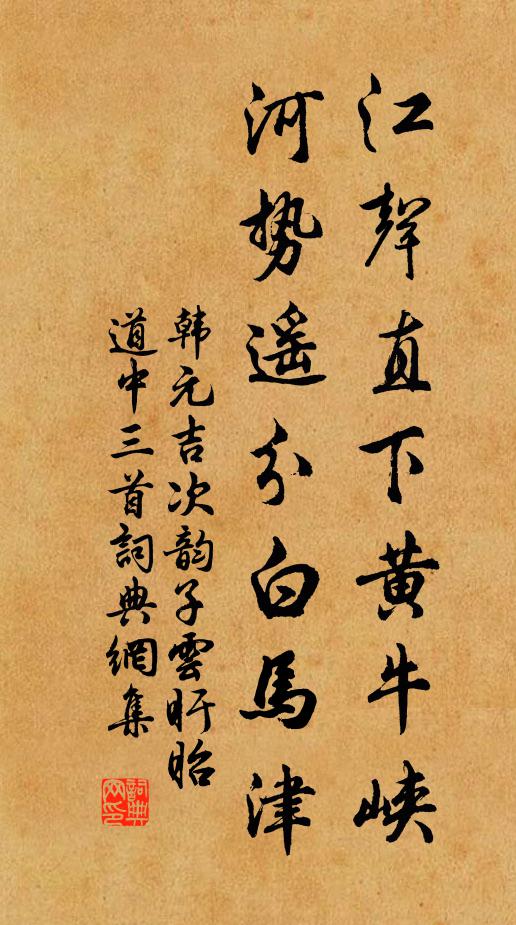 江聲直下黄牛峽
河势遥分白馬津
韩元吉次韵子雲盱眙
道中三首詞典網集
詞典
网印